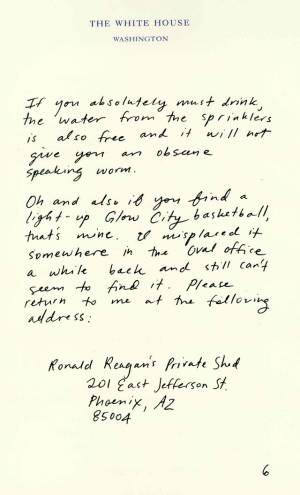 THE WHITE HOUSE
WASHINGTON
If you absolutely must drink,
the water from the sprinklers
is also free and it will not
give you an obscene
speaking worm.
Oh and also if you find a
light-up Glow City basketball,
that's mine. I misplaced it
somewhere in the Oval office
a while back and still can't
seem to find it. Please
return to me at the following
address:
Ronald Reagan's Private Shed
201 East Jefferson St.
Phoenix, AZ
85004
6